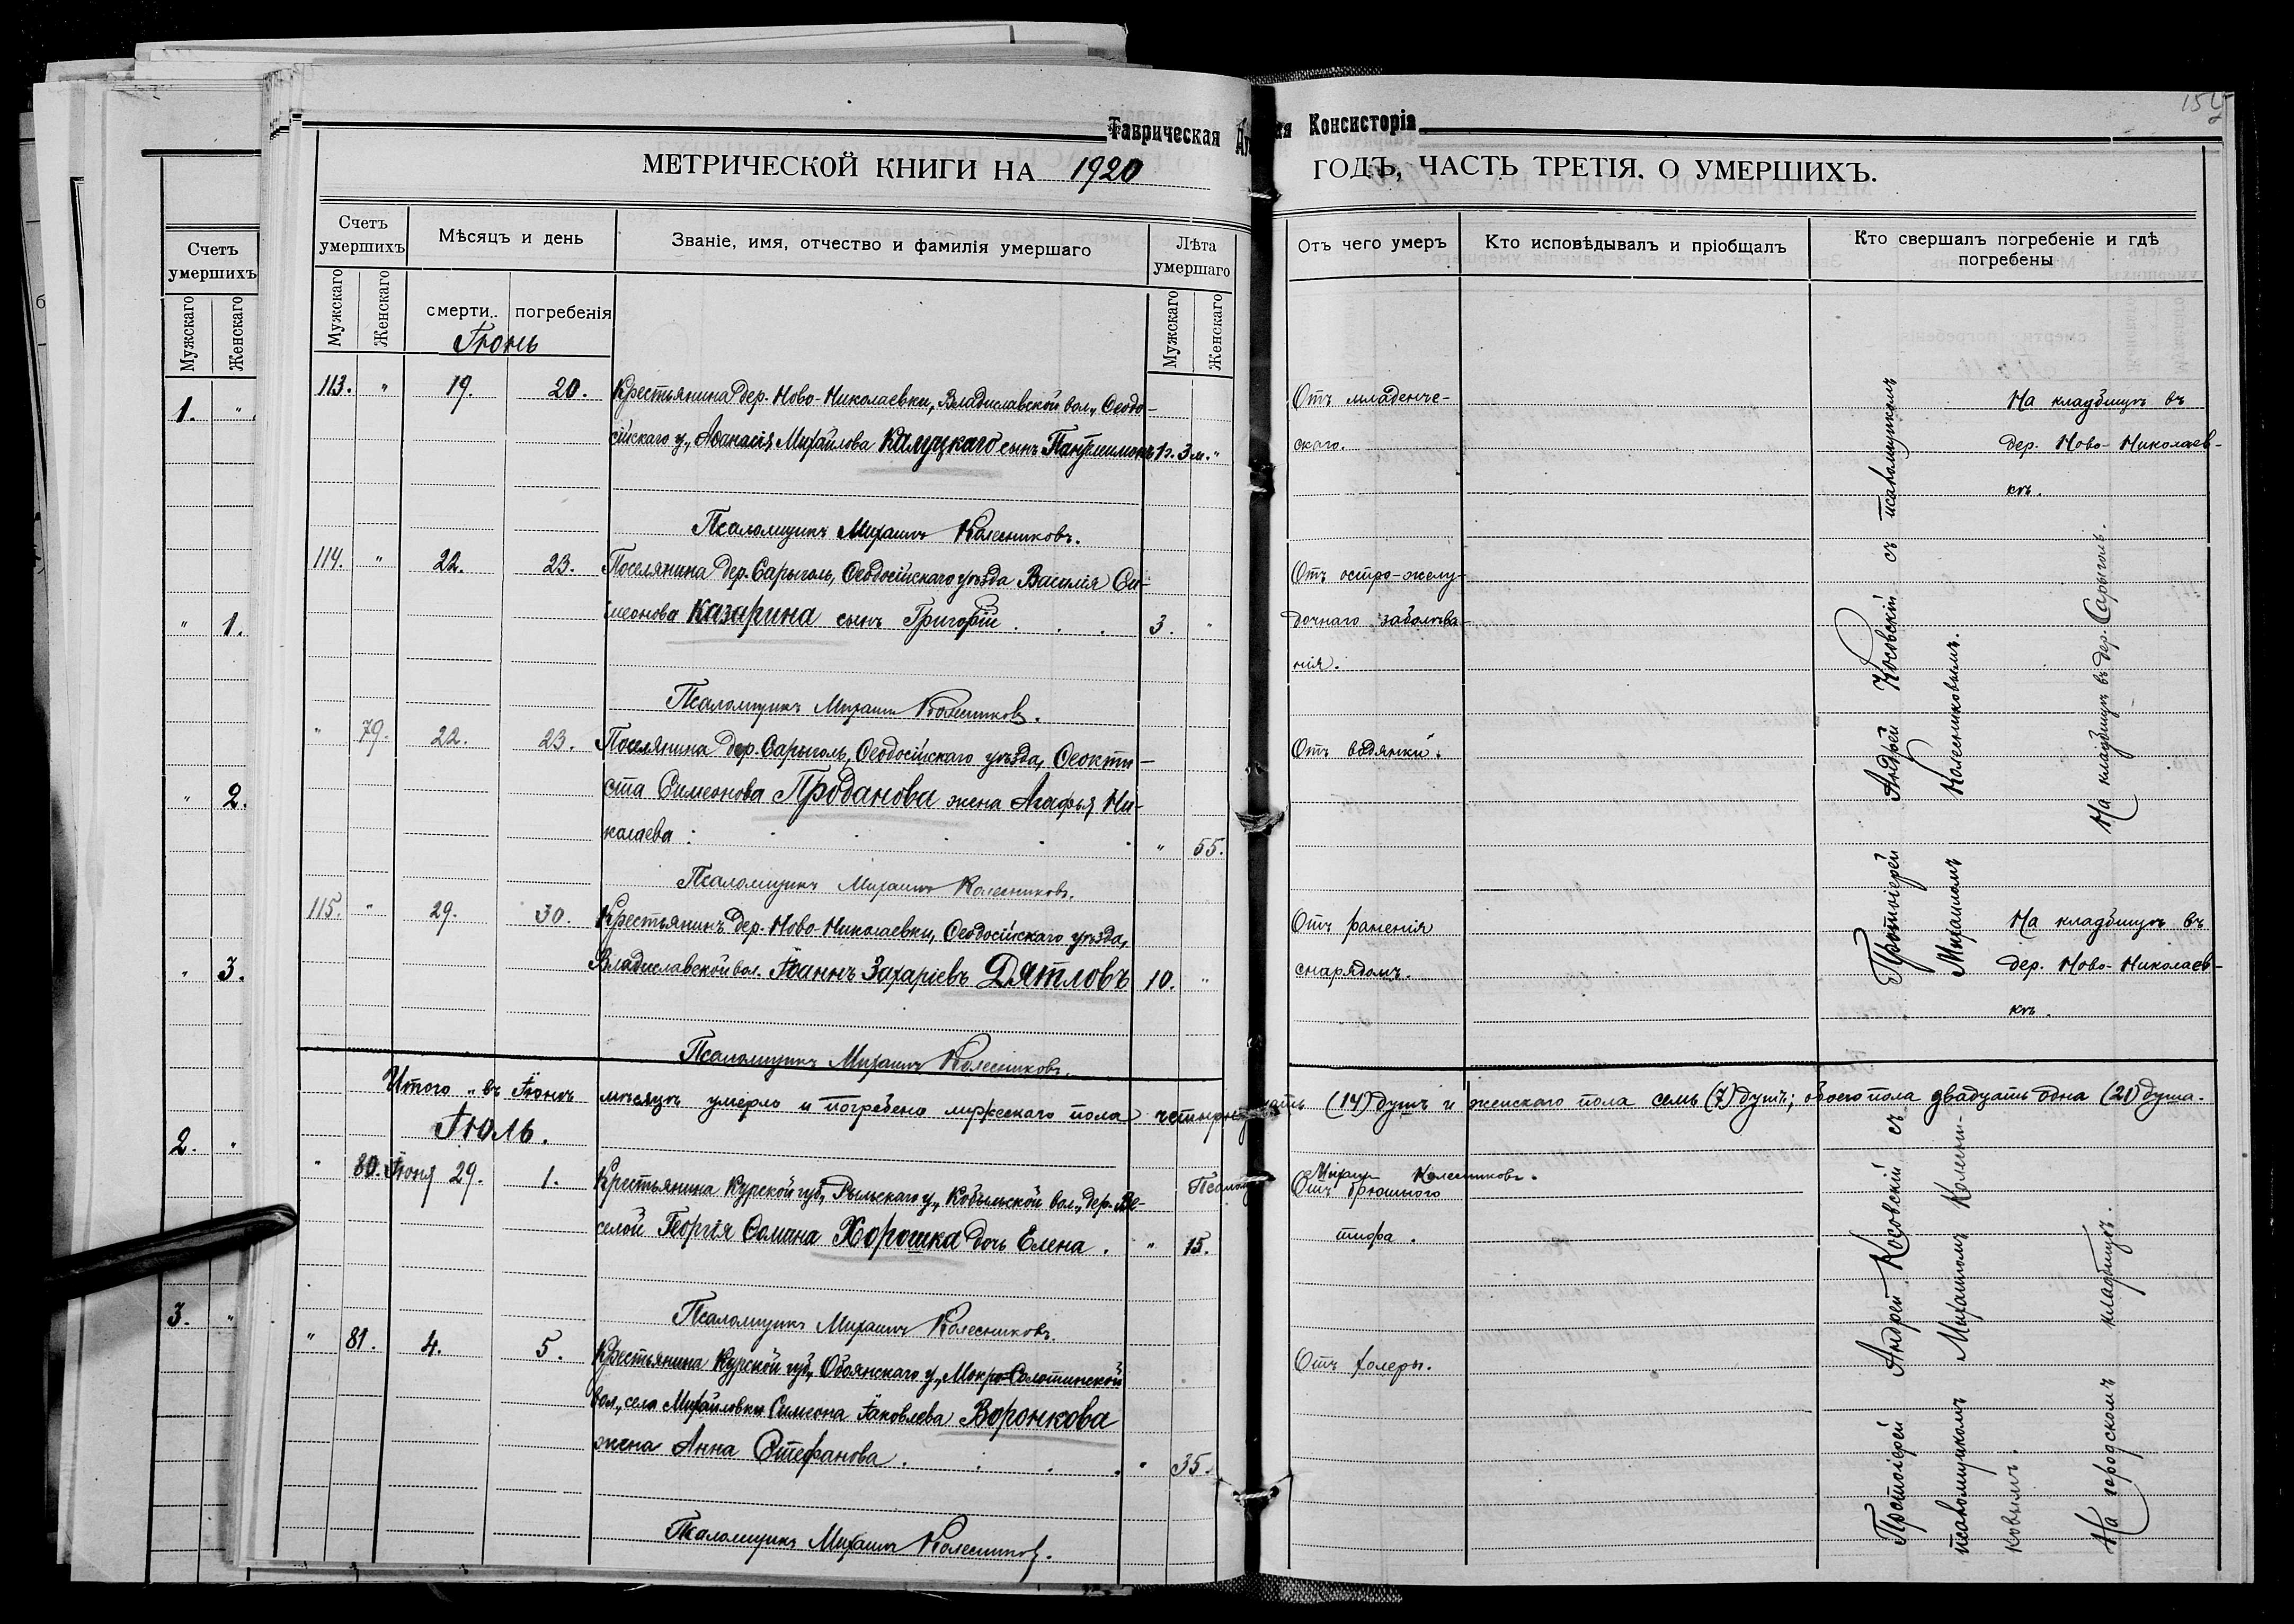 Таврическая Консисторія
152
МЕТРИЧЕСКОЙ КНИГИ НА 1920 ГОДЪ, ЧАСТЬ ТРЕТІЯ. О УМЕРШИХЪ.
Счетъ умершихъ
Мѣсяцъ и день
Званіе, имя, отчество и фамилія умершаго
Лѣта умершаго
Отъ чего умеръ
Кто исповѣдывалъ и пріобщалъ
Кто свершалъ погребеніе и гдѣ погребены
Мужскаго
Женскаго
смерти
погребенія
Мужскаго
Женскаго
Іюнь
113. " 19. 20. Крестьянина дер. Ново-Николаевки, Владиславской вол., Ѳеодо-
сійскаго у., Аѳанасія Михайлова Калуцкаго сынъ Пантелимонъ 1г. 3м. "
Отъ младенче-
скаго.
На кладбищѣ въ
дер. Ново-Николаев-
кѣ.
Псаломщикъ Михаилъ Колесниковъ.
114. " 22. 23. Поселянина дер. Сарыголь, Ѳеодосійскаго уѣзда Василія Си-
меонова Казарина сынъ Григорій . . . 3. "
Отъ остро-желу-
дочнаго заболѣва-
нія.
Псаломщикъ Михаилъ Колесниковъ.
" 79. 22. 23. Поселянина дер. Сарыголь, Ѳеодосійскаго уѣзда, Ѳеокти-
ста Симеонова Проданова жена Агафья Ни-
колаева " 55.
Отъ водянки.
Псаломщикъ Михаилъ Колесниковъ.
115. " 29. 30. Крестьянинъ дер. Ново-Николаевки, Ѳеодосійскаго уѣзда,
Владиславской вол. Іоаннъ Захаріевъ Дятловъ 10. "
Отъ раненія
снарядомъ.
На кладбищѣ въ
дер. Ново-Николаев-
кѣ.
Псаломщикъ Михаилъ Колесниковъ.
Протоіерей Андрей Косовскій съ псаломщикомъ
Михаиломъ Колесниковымъ.
На кладбищѣ въ дер. Сарыголь.
Итого въ Іюнѣ мѣсяцѣ умерло и погребено мужескаго пола четырнадцать (14) душъ и женскаго пола семь (7) душъ; обоего пола двадцать одна (21) душа.
Псаломщикъ Михаилъ Колесниковъ.
Іюль.
" 80. Іюня 29. 1. Крестьянина Курской губ., Рыльскаго у., Кобыльской вол., дер. Ве-
селой Георгія Сомина Хорошка дочь Елена . " 15.
Отъ брюшного
тифа.
Псаломщикъ Михаилъ Колесниковъ.
" 81. 4. 5. Крестьянина Курской губ., Обоянскаго у., Мокро-Солотинской
вол., села Михайловки Симеона Іаковлева Воронкова
жена Анна Стефанова . . . . " 35.
Отъ холеры.
Псаломщикъ Михаилъ Колесниковъ.
Протоіерей Андрей Косовскій съ
псаломщикомъ Михаиломъ Колесни-
ковымъ.
На городскомъ кладбищѣ.
Счетъ умершихъ
Мужскаго
Женскаго
1. "
" 1.
" 2.
" 3.
2. "
3. "